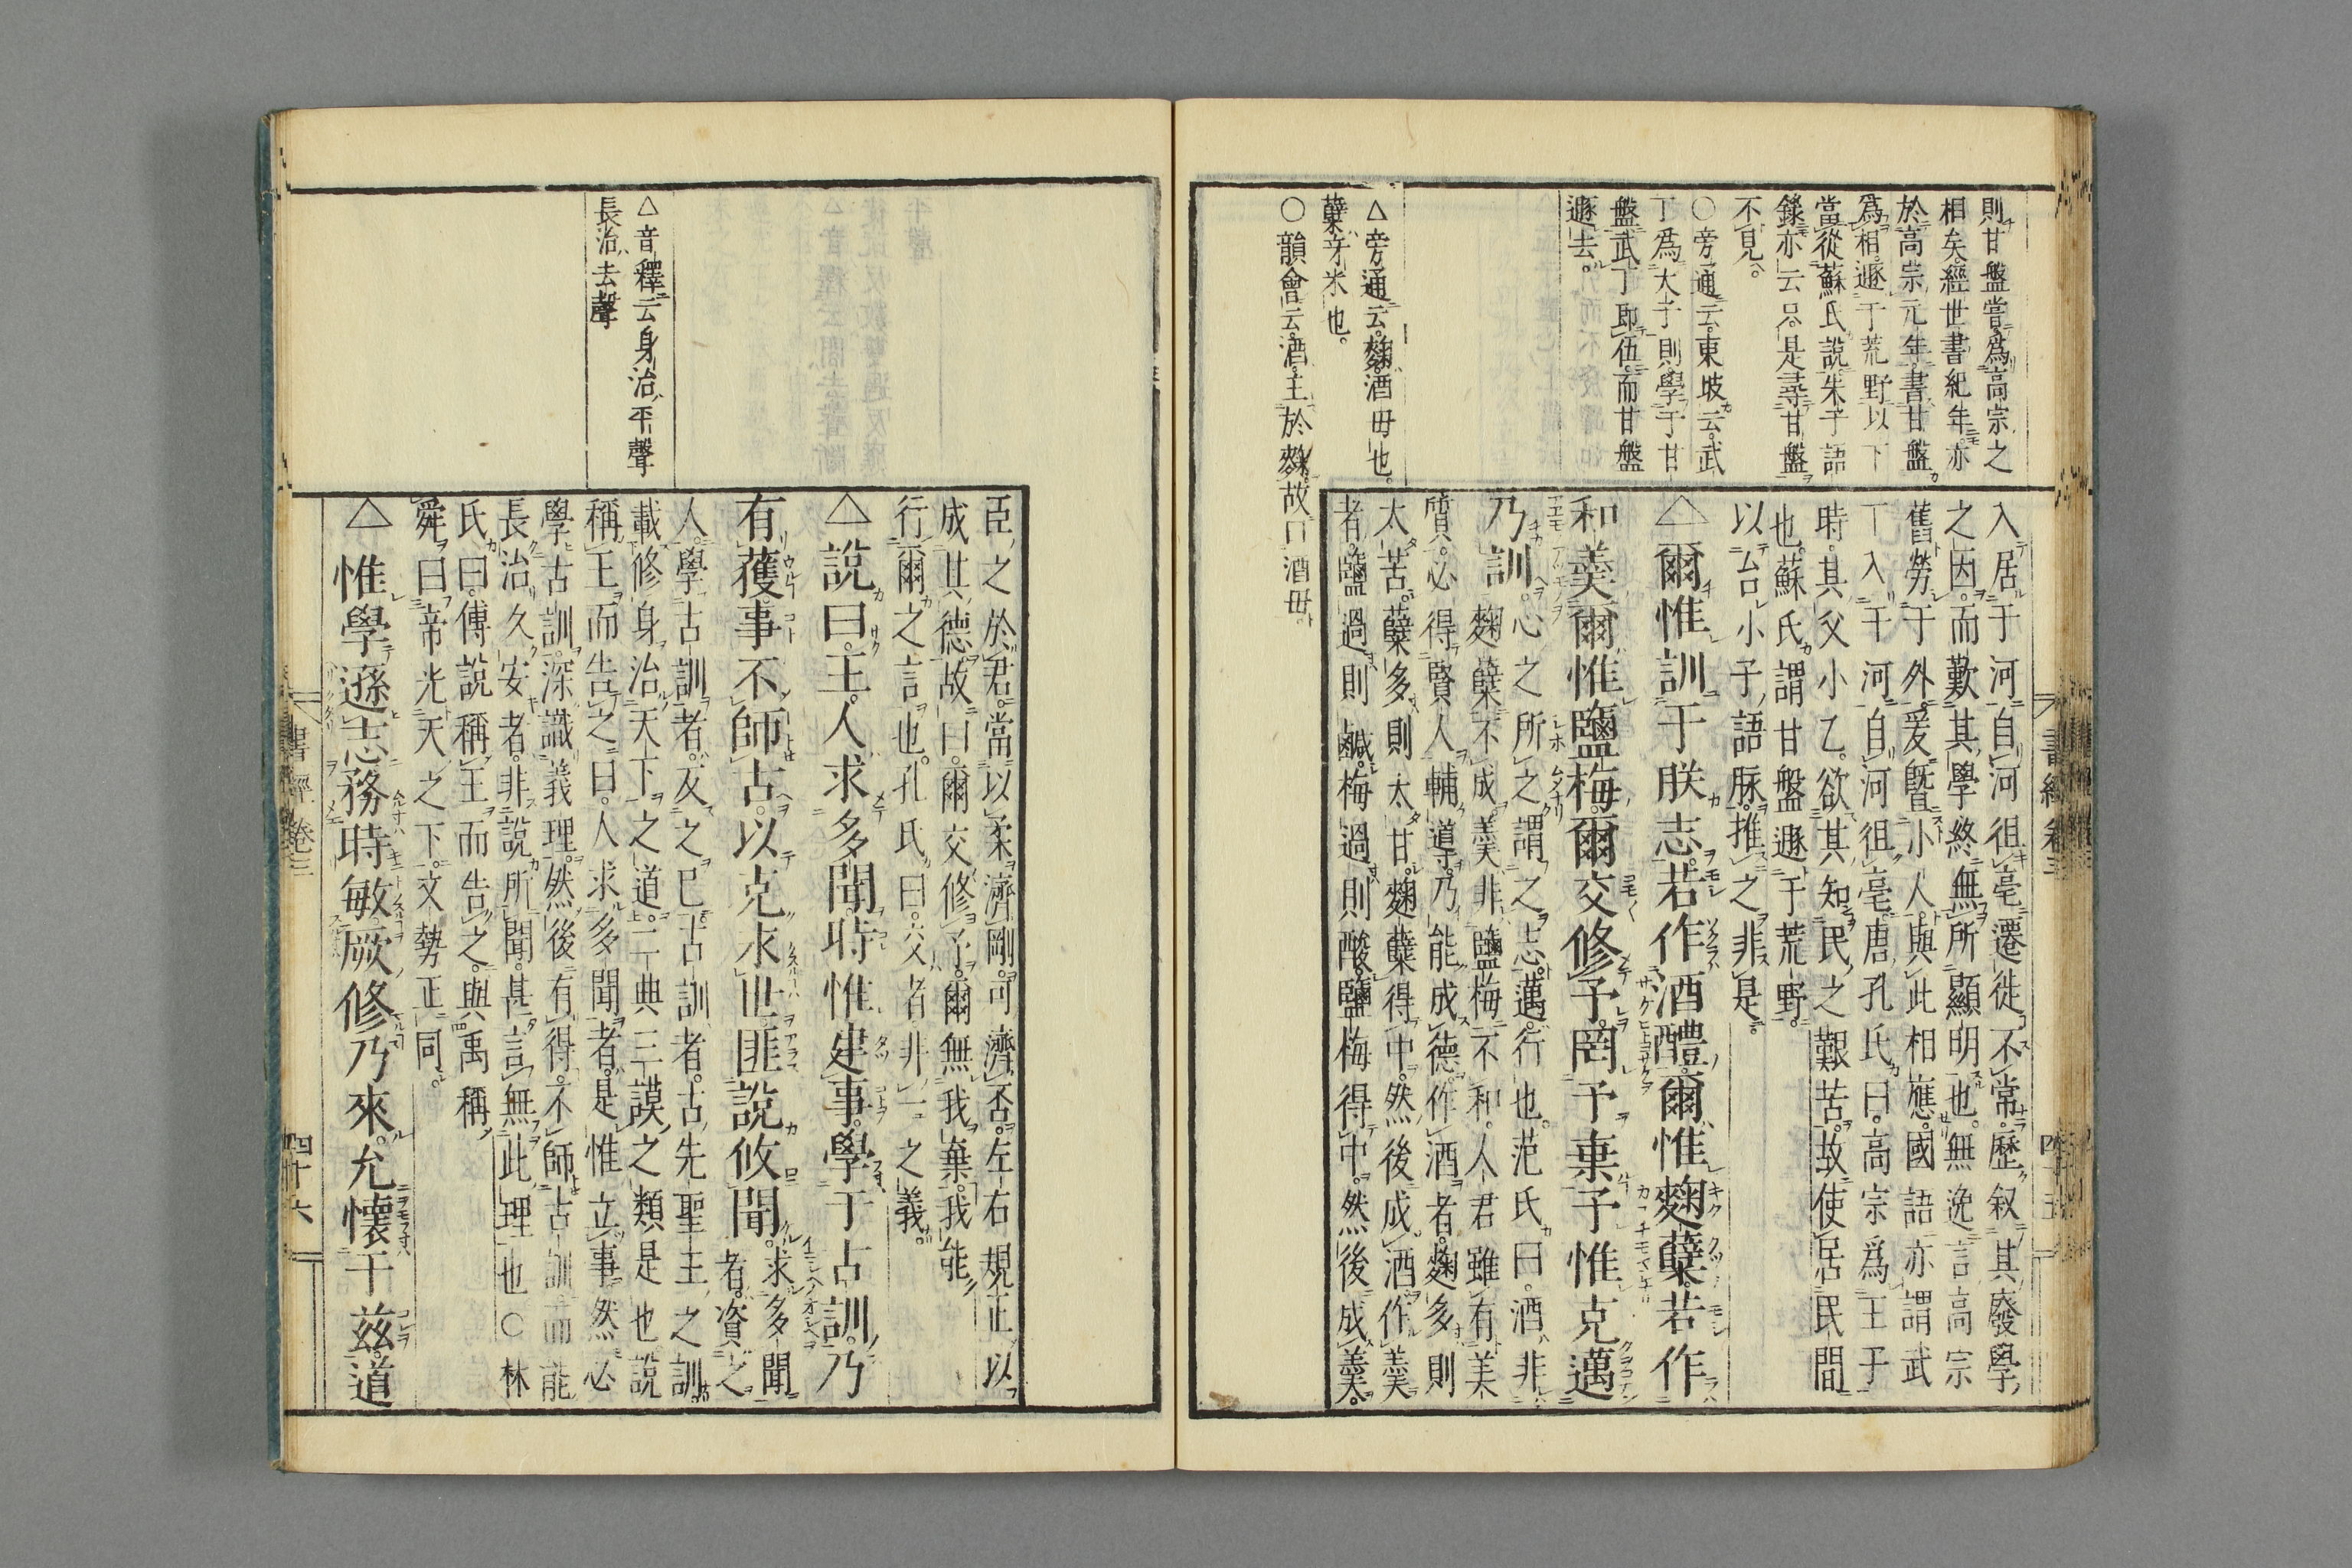 則甘盤嘗爲高宗之
相矣經世書紀年亦
於高宗元年書甘盤
爲相遯于荒野以下
當從蘇氏說朱子語
錄亦云只是尋甘盤
不見。
○旁通云東坡云武
丁爲大子則學于甘
盤武丁即位而甘盤
遯去。
△旁通云麴酒母也。
糵牙米也。
○韻會云酒主於麴故曰酒母
書經卷三
四十五
入居于河自河徂亳遷徙不常歷叙其廢學
之因而歎其學終無所顯明也無逸言高宗
舊勞于外爰曁小人與此相應國語亦謂武
丁入于河自河徂亳唐孔氏曰高宗爲王子
時其父小乙欲其知民之艱苦故使居民間
也蘇氏謂甘盤遯于荒野
以台小子語脉推之非是
△爾惟訓于朕志若作酒醴爾惟麴糵若作
和羹爾惟鹽梅爾交修予罔予棄予惟克邁
乃訓心之所之謂之志邁行也范氏曰酒非
麴糵不成羹非鹽梅不和人君雖有美
質必得賢人輔導乃能成德作酒者麴多則
太苦糵多則太甘麴糵得中然後成酒作羹
者鹽過則鹹梅過則酸鹽梅得中然後成羹
臣之於君當以柔濟剛可濟否左右規正以
成其德故曰爾交修予爾無我棄我能
行爾之言也孔氏曰交者非一之義
△說曰王人求多聞時惟建事學于古訓乃
有獲事不師古以克永世匪說攸聞求多聞
者資之
人學古訓者反之己古訓者古先聖王之訓
載修身治天下之道二典三謨之類是也說
稱王而告之曰人求多聞者是惟立事然必
學古訓深識義理然後有得不師古訓而能
長治久安者非說所聞甚言無此理也○林
氏曰傅說稱王而告之與禹稱
舜曰帝光天之下文勢正同
△惟學遜志務時敏厥修乃來允懷于茲道
△音釋云身治平聲
長治去聲
書經卷三
四十六